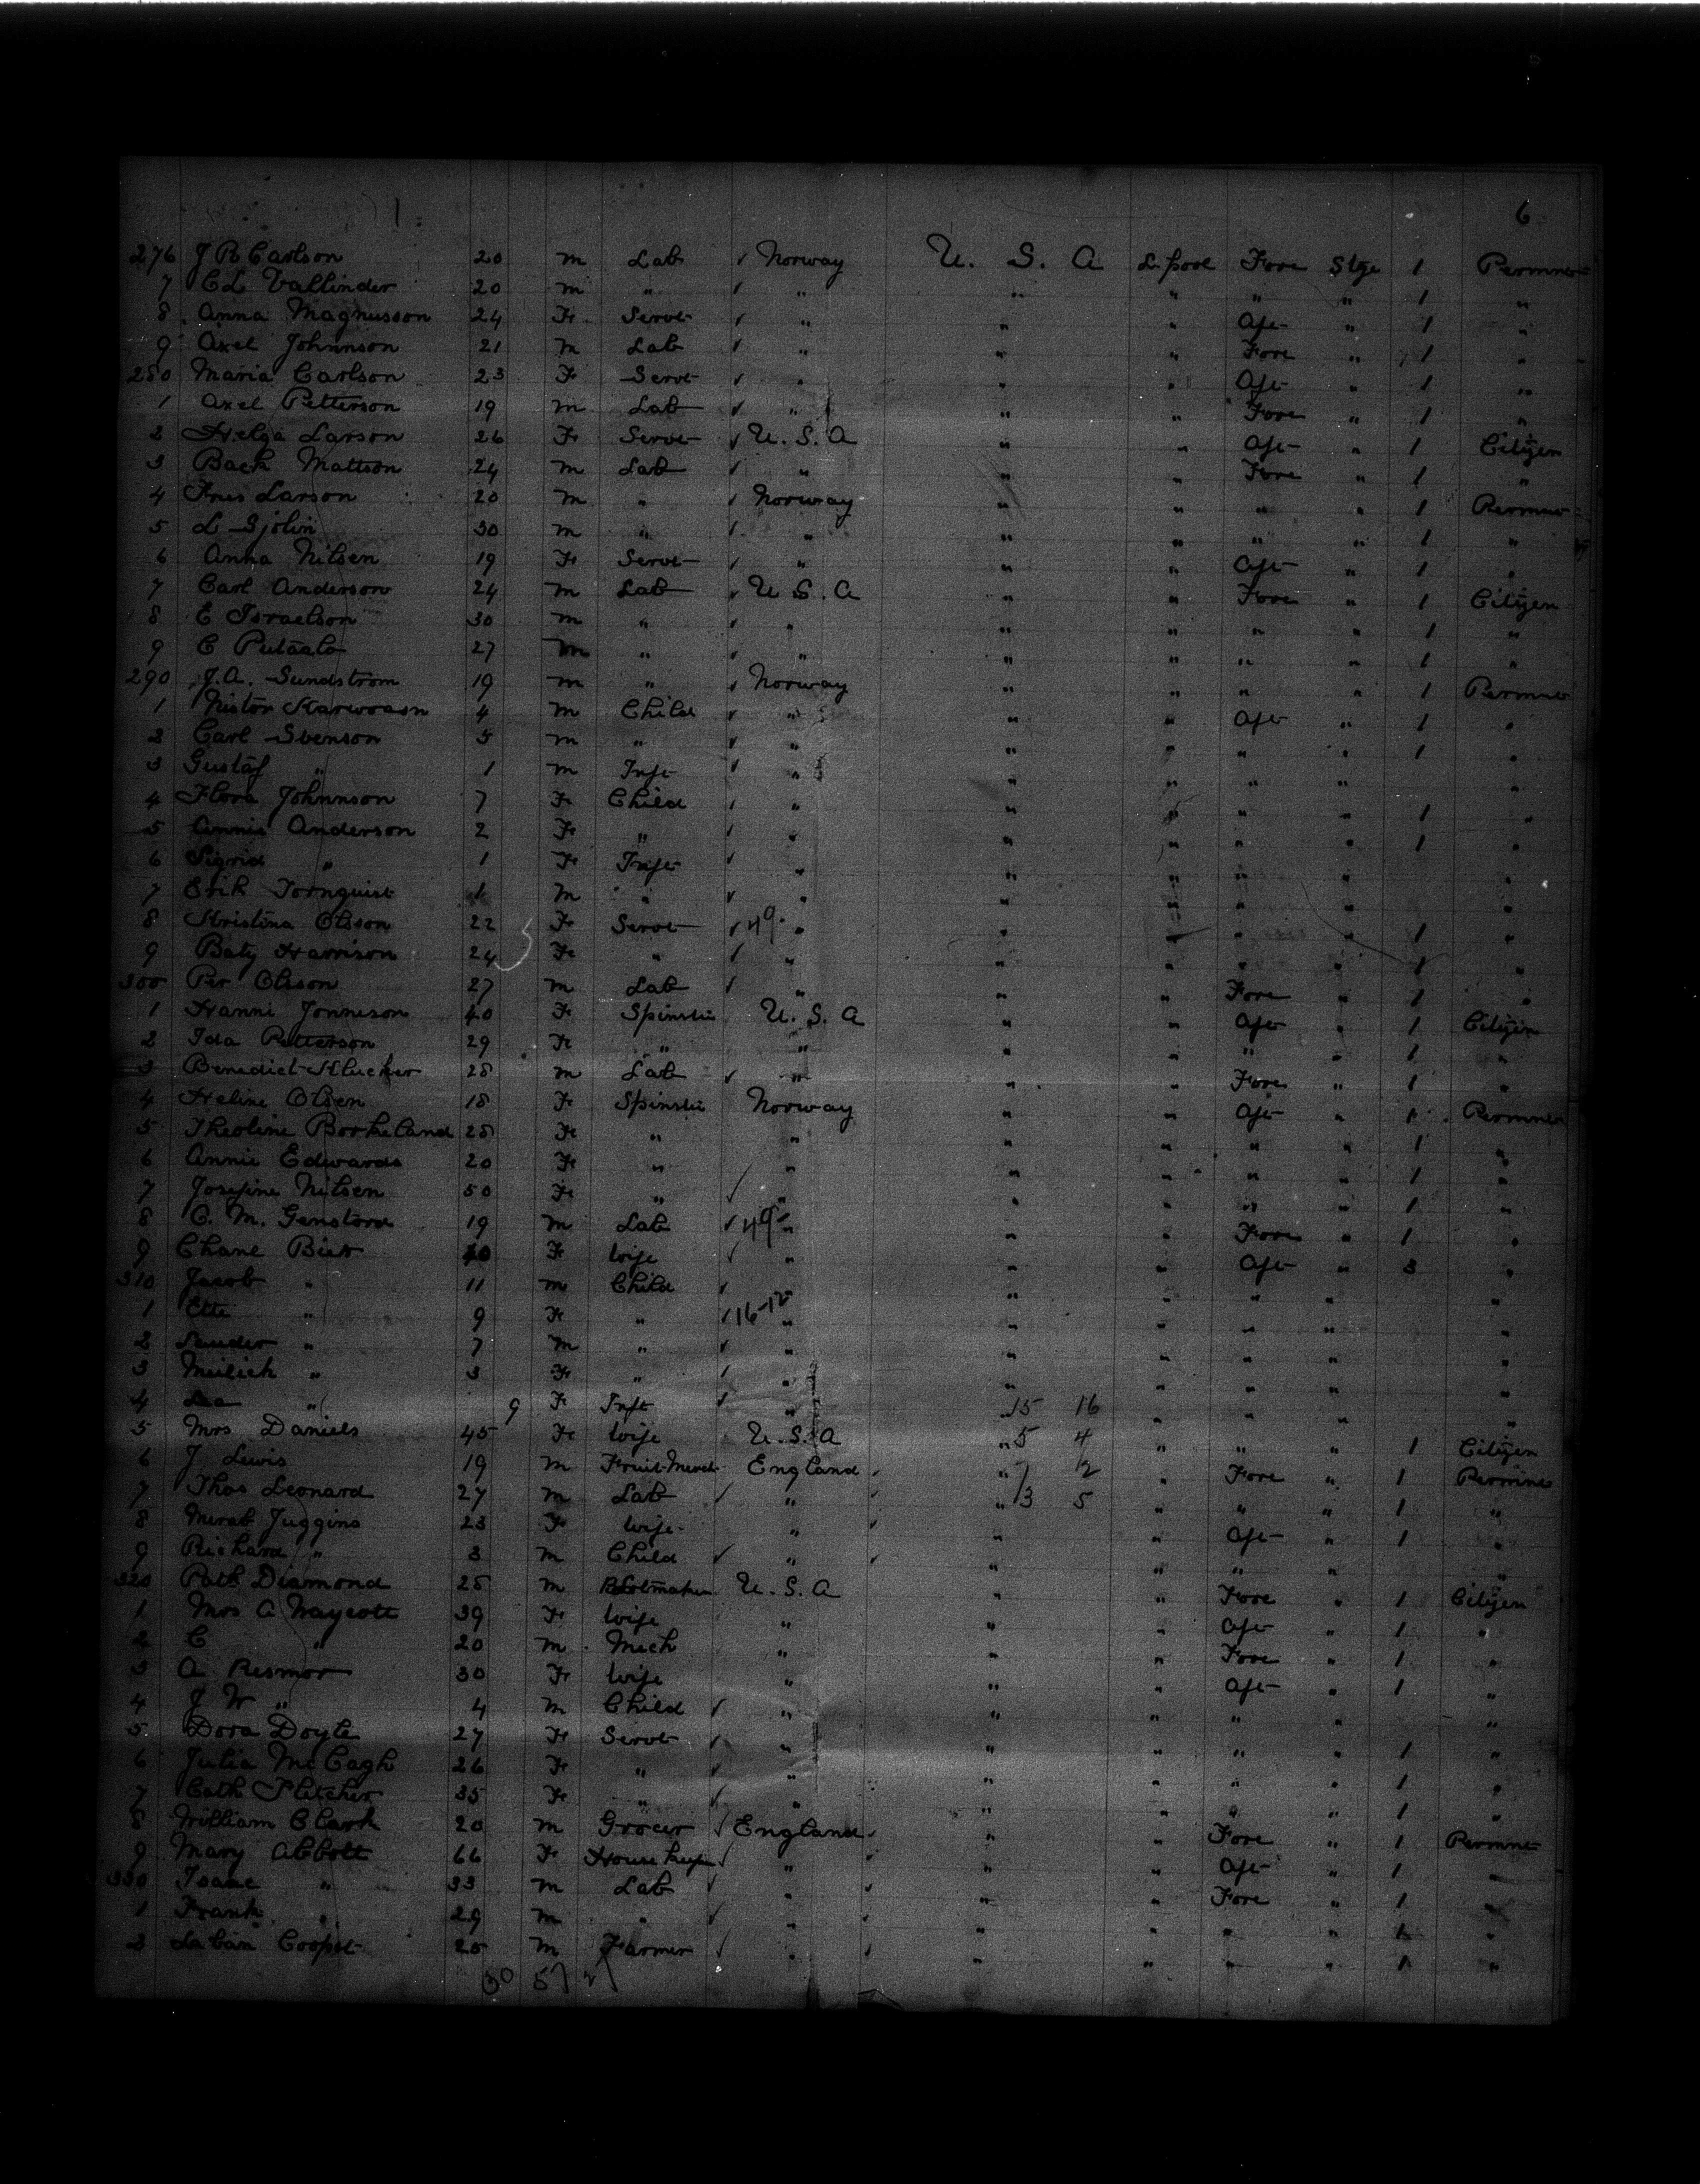 6
276 J R Carlson 20 m Lab ✓ Norway U. S. A L.pool Fore Stge 1 Permne
7 C L Vallinder 20 m " ✓ " " " " " 1 "
8 Anna Magnusson 24 F Servt ✓ " " " Aft " 1 "
9 Axel Johnnson 21 m Lab ✓ " " " Fore " 1 "
280 Maria Carlson 23 F Servt ✓ " " " Aft " 1 "
1 Axel Petterson 19 m Lab ✓ " " " Fore " 1 "
2 Helga Larson 26 F Servt ✓ U. S. A " " Aft " 1 Citizen
3 Back Mattson 24 m Lab ✓ " " " Fore " 1 "
4 Larson 20 m " ✓ Norway " " " " 1 Permne
5 L Sjolin 30 m " ✓ " " " " " 1 "
6 Anna Nilsen 19 F Servt ✓ " " " Aft " 1 "
7 Carl Anderson 24 m Lab ✓ U S. A " " Fore " 1 Citizen
8 E Israelson 30 m " ✓ " " " " " 1 "
9 C 27 m " ✓ " " " " " 1 "
290 J. A. Sundstrom 19 m " ✓ Norway " " " " 1 Permne
1 4 m Child ✓ " " " Aft " 1 "
2 Carl Svenson 5 m " ✓ " " " " " 1 "
3 Gustaf " 1 m Inft ✓ " " " " " "
4 Flora Johnnson 7 F Child ✓ " " " " " 1 "
5 Annie Anderson 2 F " ✓ " " " " " 1 "
6 Sigrid " 1 F Inft ✓ " " " " " "
7 Erik Tornquist 1 m " ✓ " " " " " "
8 Kristina Olsson 22 F Servt ✓ 49 " " " " " 1 "
9 Baty Harrison 24 F " ✓ " " " " " 1 "
300 Per Olsson 27 m Lab ✓ " " " Fore " 1 "
1 Hanni Jonneson 40 F Spinstr U. S. A " " Aft " 1 Citizen
2 Ida Petterson 29 F " " " " " " 1 "
3 Benedict Klucker 28 m Lab ✓ " " " Fore " 1 "
4 Heline Olsen 18 F Spinstr Norway " " Aft " 1 Permne
5 Theoline Borkeland 25 F " " " " " " 1 "
6 Annie Edwards 20 F " " " " " " 1 "
7 Josefine Nilsen 50 F " ✓ " " " " " 1 "
8 C. M. Genstord 19 m Lab ✓ 49 " " " Fore " 1 "
9 Chane 40 F Wife ✓ " " " Aft " 3 "
310 Jacob " 11 m Child ✓ " " " " "
1 Etti " 9 F " ✓ 16-12 " " " " " "
2 " 7 m " ✓ " " " " " "
3 " 3 F " ✓ " " " " " "
4 " 9 F Inft ✓ " 15 16 " " " "
5 Mrs Daniels 45 F Wife U. S. A " 5 4 " " " 1 Citizen
6 J. Lewis 19 m Fruit Merch England " 7 12 " Fore " 1 Permne
7 Thos Leonard 27 m Lab ✓ " " 13 5 " " " 1 "
8 Juggins 23 F Wife " " " Aft " 1 "
9 Richard " 3 m Child ✓ " " " " " "
320 Patk Diamond 25 m U. S. A " " Fore " 1 Citizen
1 Mrs A Waycott 39 F Wife " " " Aft " 1 "
2 C " 20 m Mech " " " Fore " 1 "
3 A Resmor 30 F Wife " " " Aft " 1 "
4 J W " 4 m Child ✓ " " " " " "
5 Dora Doyle 27 F Servt ✓ " " " " " 1 "
6 Julia McCagh 26 F " ✓ " " " " " 1 "
7 Cath Fletcher 35 F " ✓ " " " " " 1 "
8 William Clark 20 m Grocer ✓ England " " Fore " 1 Permne
9 Mary Abbott 66 F House keeper ✓ " " " Aft " 1 "
330 Isaac " 33 m Lab ✓ " " " Fore " 1 "
1 Frank " 29 m " ✓ " " " " " 1 "
2 Laban Cooper 25 m Farmer ✓ " " " " " 1 "
30 57 27